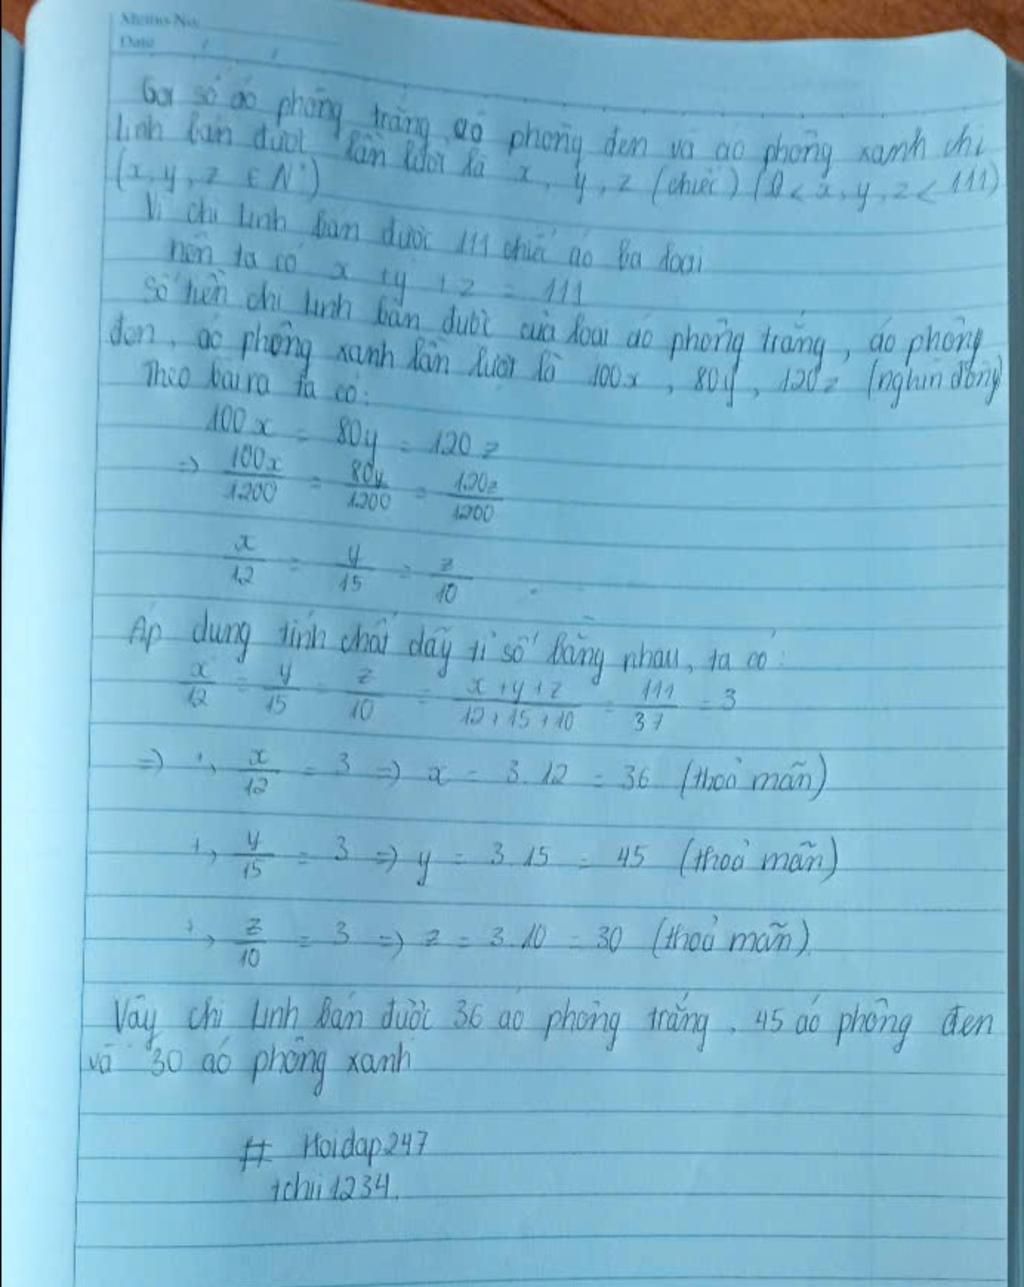 Memo No.
Date / /
Gọi số áo phông trắng, áo phông đen và áo phông xanh chị
Linh bán được lần lượt là x, y, z (chiếc) (0 < x, y, z < 111)
(x, y, z ∈ N*)
Vì chị Linh bán được 111 chiếc áo ba loại
nên ta có x + y + z = 111
Số tiền chị Linh bán được của loại áo phông trắng, áo phông
đen, áo phông xanh lần lượt là 100x, 80y, 120z (nghìn đồng)
Theo bài ra ta có:
100x = 80y = 120z
=> 100x/1200 = 80y/1200 = 120z/1200
x/12 = y/15 = z/10
Áp dụng tính chất dãy tỉ số bằng nhau, ta có:
x/12 = y/15 = z/10 = x+y+z/12+15+10 = 111/37 = 3
=> +, x/12 = 3 => x = 3.12 = 36 (thoả mãn)
+, y/15 = 3 => y = 3.15 = 45 (thoả mãn)
+, z/10 = 3 => z = 3.10 = 30 (thoả mãn)
Vậy chị Linh bán được 36 áo phông trắng, 45 áo phông đen
và 30 áo phông xanh
# Hoidap247
1chii1234.